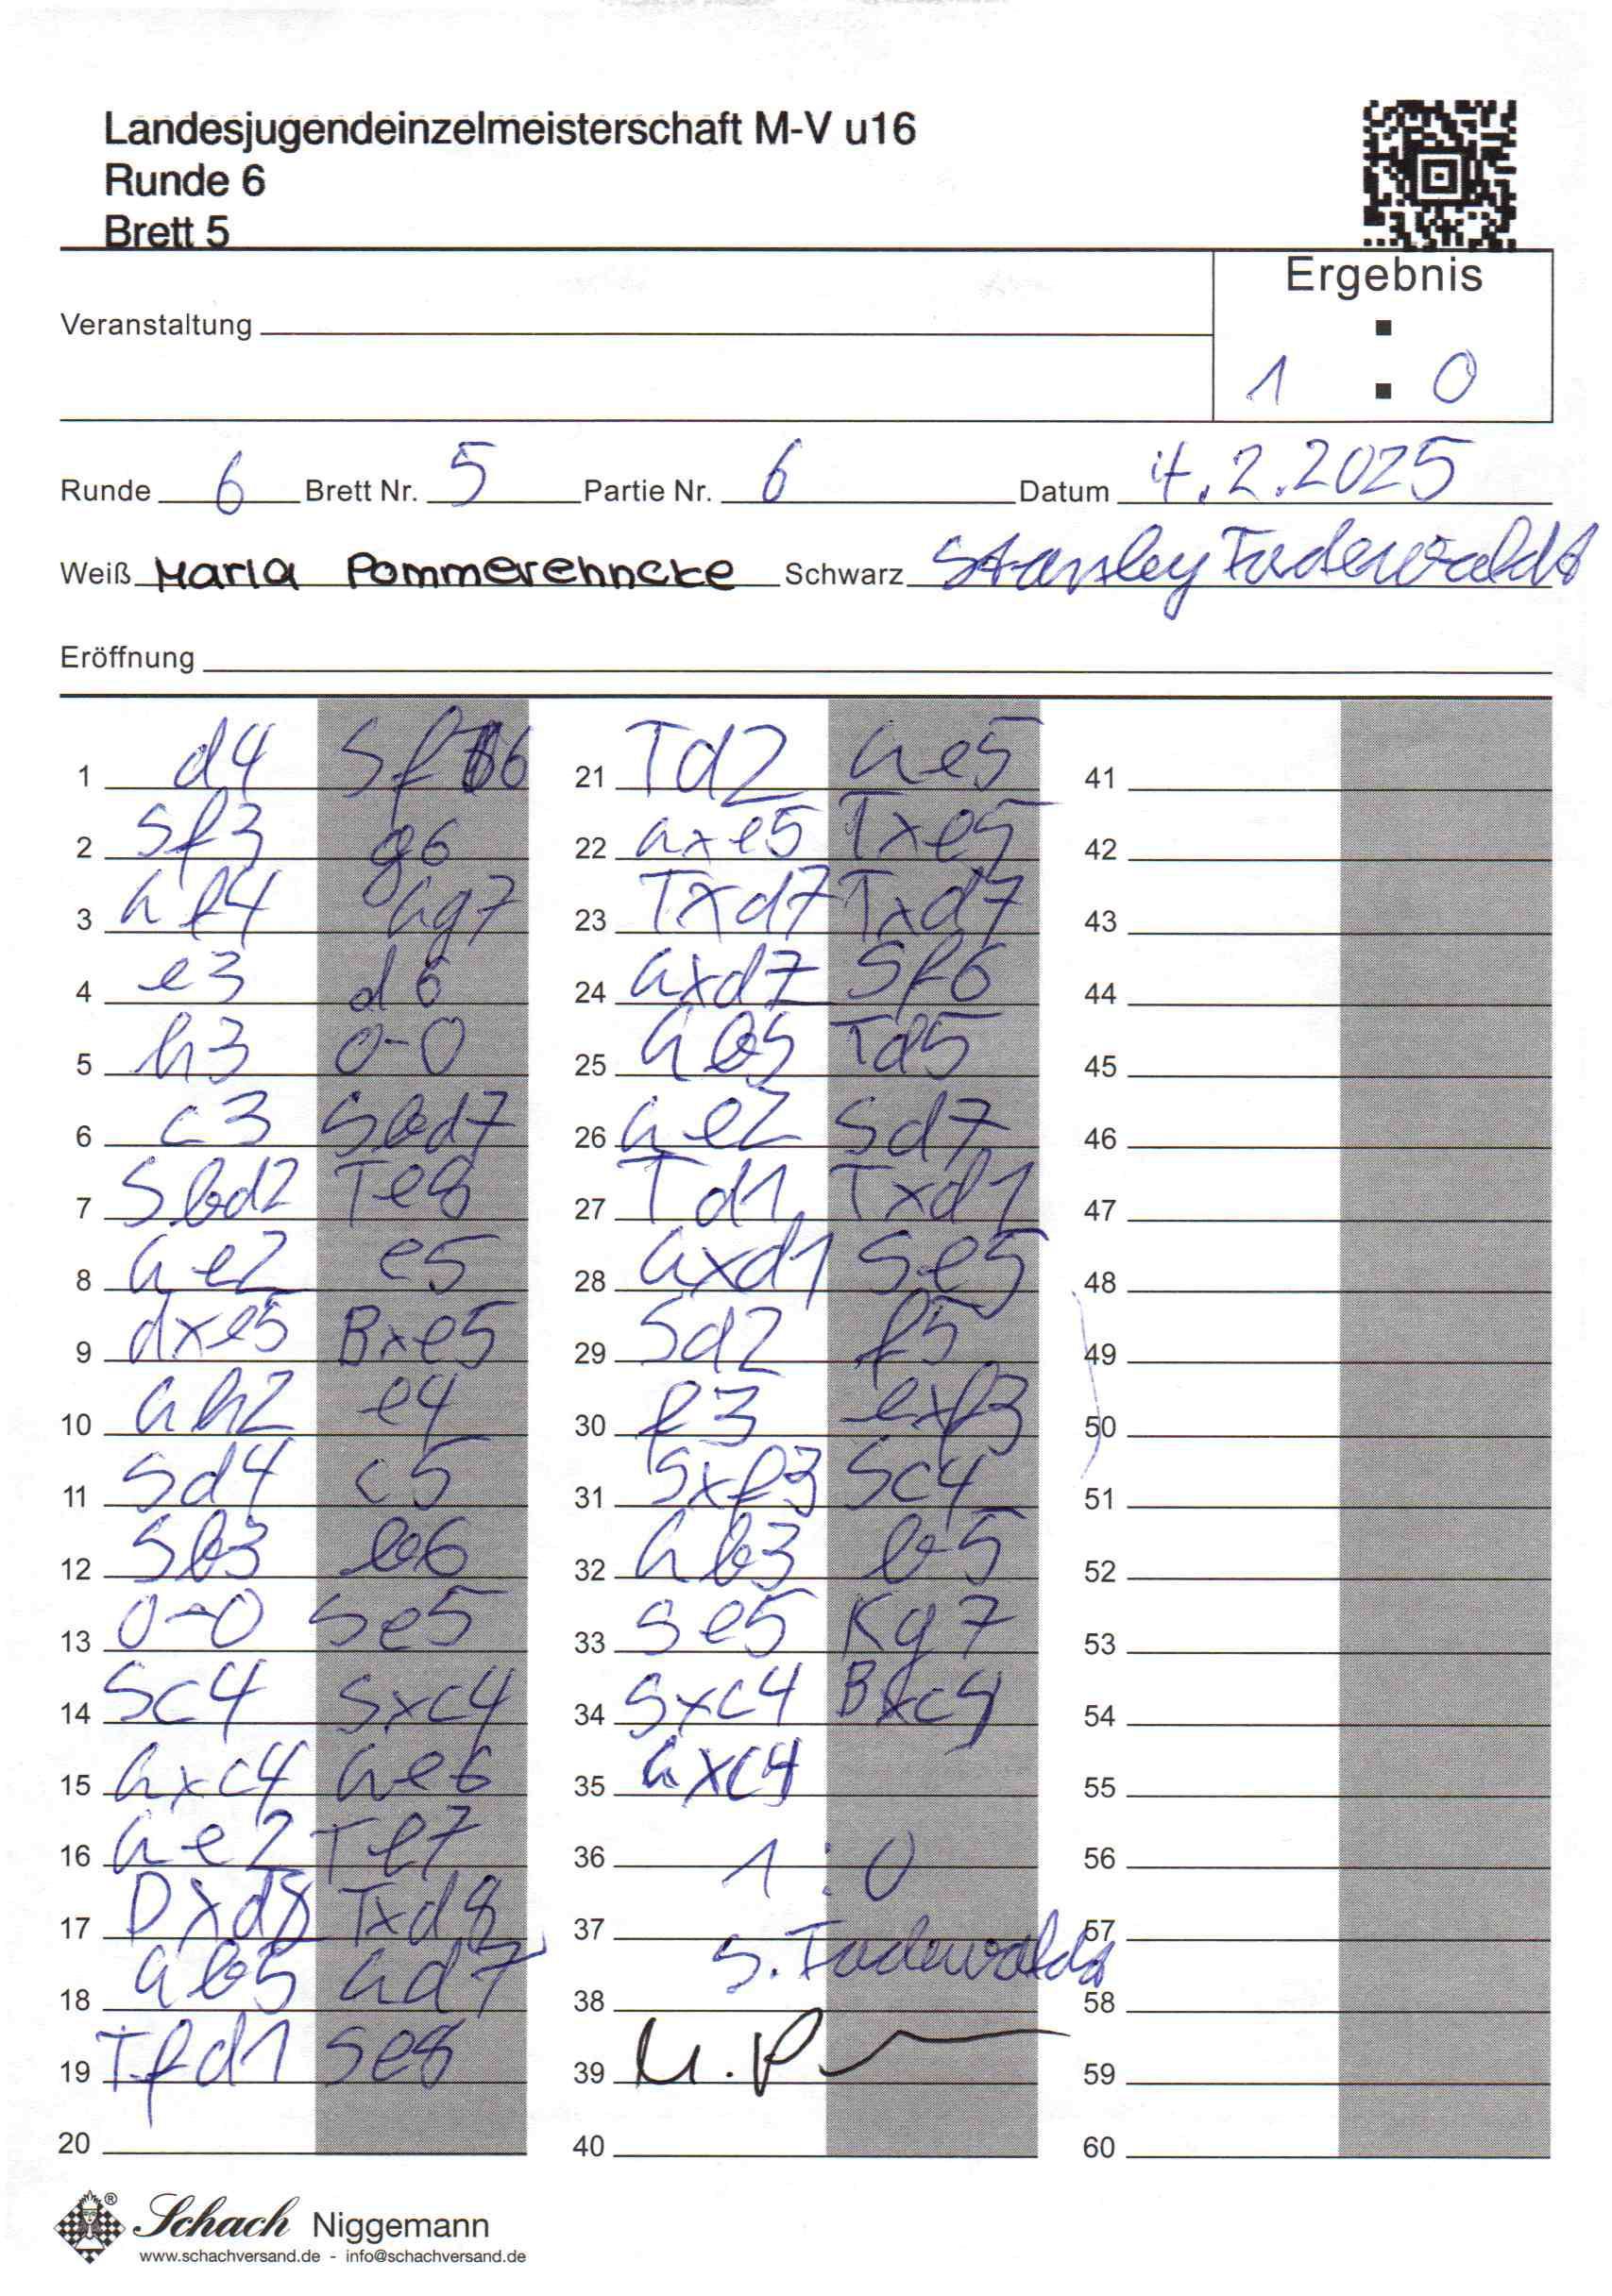 Landesjugendeinzelmeisterschaft M-V u16
Runde 6
Brett 5
Ergebnis
:
Veranstaltung
1 : 0
Runde 6 Brett Nr. 5 Partie Nr. 6 Datum 4.2.2025
Weiß Maria Pommerehncke Schwarz Stanley
Eröffnung
1 d4 Sf6
2 Sf3 g6
3 Lf4 Lg7
4 e3 d6
5 h3 0-0
6 c3 Sbd7
7 Sbd2 Te8
8 Le2 e5
9 dxe5 Bxe5
10 Lh2 e4
11 Sd4 c5
12 Sb3 b6
13 0-0 Se5
14 Sc4 Sxc4
15 Lxc4 Le6
16 Le2 Te7
17 Dxd8 Txd8
18 Lb5 Ld7
19 Tfd1 Se8
20
21 Td2 Le5
22 Lxe5 Txe5
23 Txd7 Txd7
24 Lxd7 Sf6
25 Lb5 Td5
26 Le2 Sd7
27 Td1 Txd1
28 Lxd1 Se5
29 Sd2 f5
30 f3 exf3
31 Sxf3 Sc4
32 Lb3 b5
33 Se5 Kg7
34 Sxc4 Bxc4
35 Lxc4
36 1:0
37
38 S.
39 M.P
40
41
42
43
44
45
46
47
48
49
50
51
52
53
54
55
56
57
58
59
60
Schach Niggemann
www.schachversand.de - info@schachversand.de